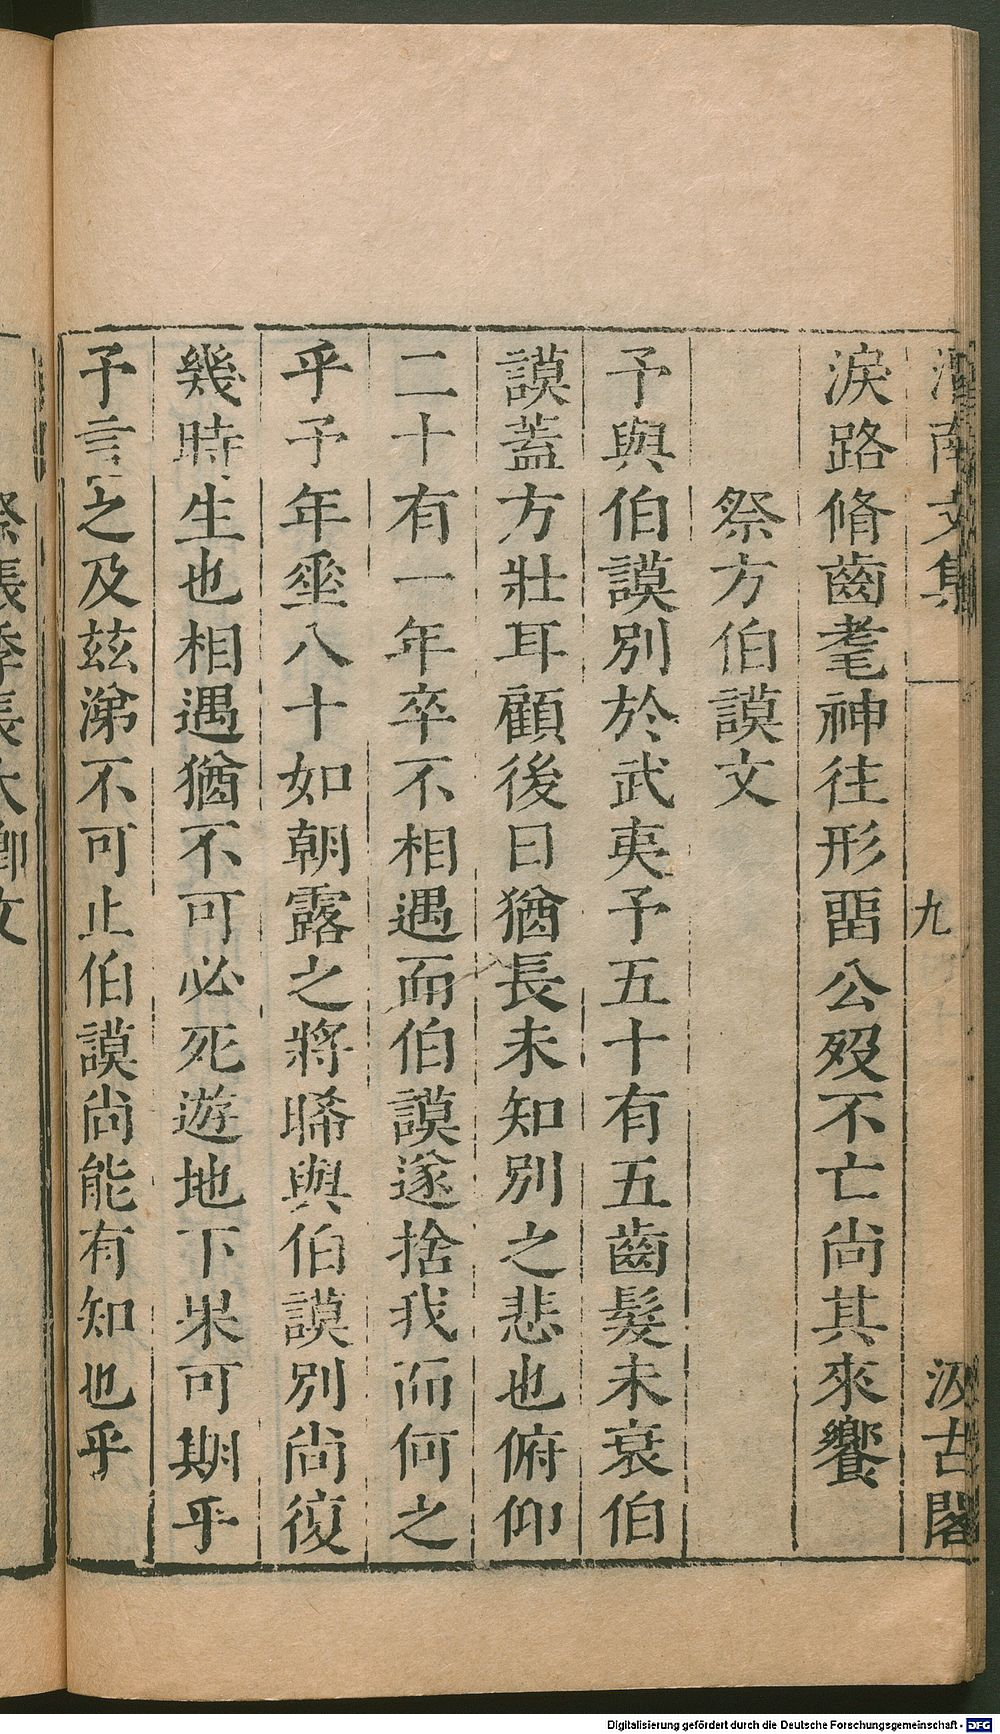 渭南文集 九 汲古閣
淚路脩齒耄神往形畱公歿不亡尚其來饗
祭方伯謨文
予與伯謨別於武夷予五十有五齒髮未衰伯
謨蓋方壯耳顧後日猶長未知別之悲也俯仰
二十有一年卒不相遇而伯謨遂捨我而何之
乎予年垂八十如朝露之將晞與伯謨別尚復
幾時生也相遇猶不可必死遊地下果可期乎
予言之及兹涕不可止伯謨尚能有知也乎
祭張季長大卿文
Digitalisierung gefördert durch die Deutsche Forschungsgemeinschaft - DFG